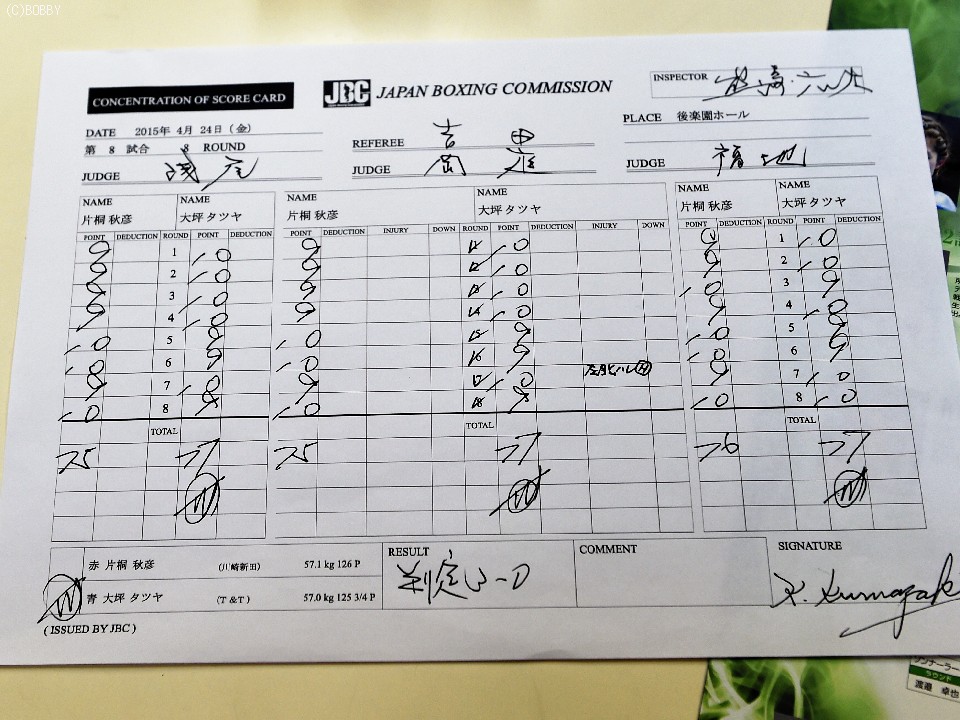 (C)BOBBY
CONCENTRATION OF SCORE CARD
JBC JAPAN BOXING COMMISSION
INSPECTOR
DATE 2015年 4月 24日 (金)
第 8 試合 8 ROUND
REFEREE 吉田
PLACE 後楽園ホール
JUDGE 浅尾
JUDGE 岡庭
JUDGE 福地
NAME 片桐 秋彦 NAME 大坪 タツヤ
POINT DEDUCTION ROUND POINT DEDUCTION
9 1 10
9 2 10
9 3 10
9 4 10
10 5 9
10 6 9
9 7 10
10 8 9
TOTAL
75 77
W
NAME 片桐 秋彦 NAME 大坪 タツヤ
POINT DEDUCTION INJURY DOWN ROUND POINT DEDUCTION INJURY DOWN
9 10
9 10
9 10
9 10
10 9
10 9
9 10
10 9
TOTAL
75 77
W
NAME 片桐 秋彦 NAME 大坪 タツヤ
POINT DEDUCTION ROUND POINT DEDUCTION
9 1 10
9 2 10
10 3 9
9 4 10
10 5 9
10 6 9
9 7 10
10 8 10
TOTAL
76 77
W
赤 片桐 秋彦 (川崎新田) 57.1 kg 126 P
W 青 大坪 タツヤ (T &T ) 57.0 kg 125 3/4 P
RESULT
判定 3-0
COMMENT
SIGNATURE
K. Kumazaki
( ISSUED BY JBC )
ラウンド
渡邉 卓也